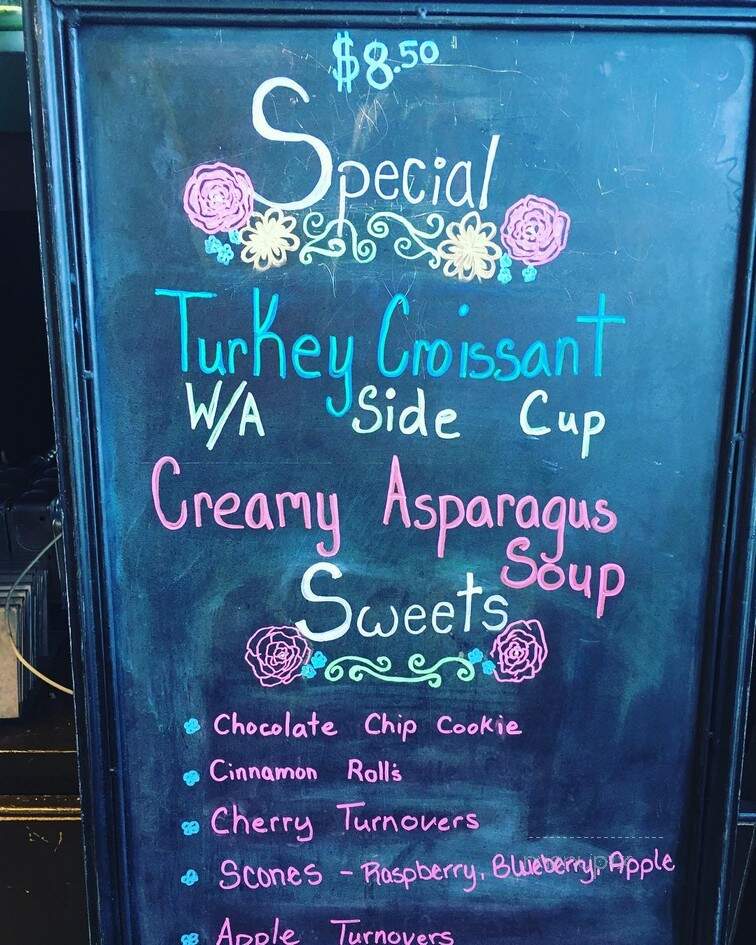 $8.50
Special
Turkey Croissant
W/A Side Cup
Creamy Asparagus
Soup
Sweets
Chocolate Chip Cookie
Cinnamon Rolls
Cherry Turnovers
Scones - Raspberry, Blueberry, Apple
Apple Turnovers